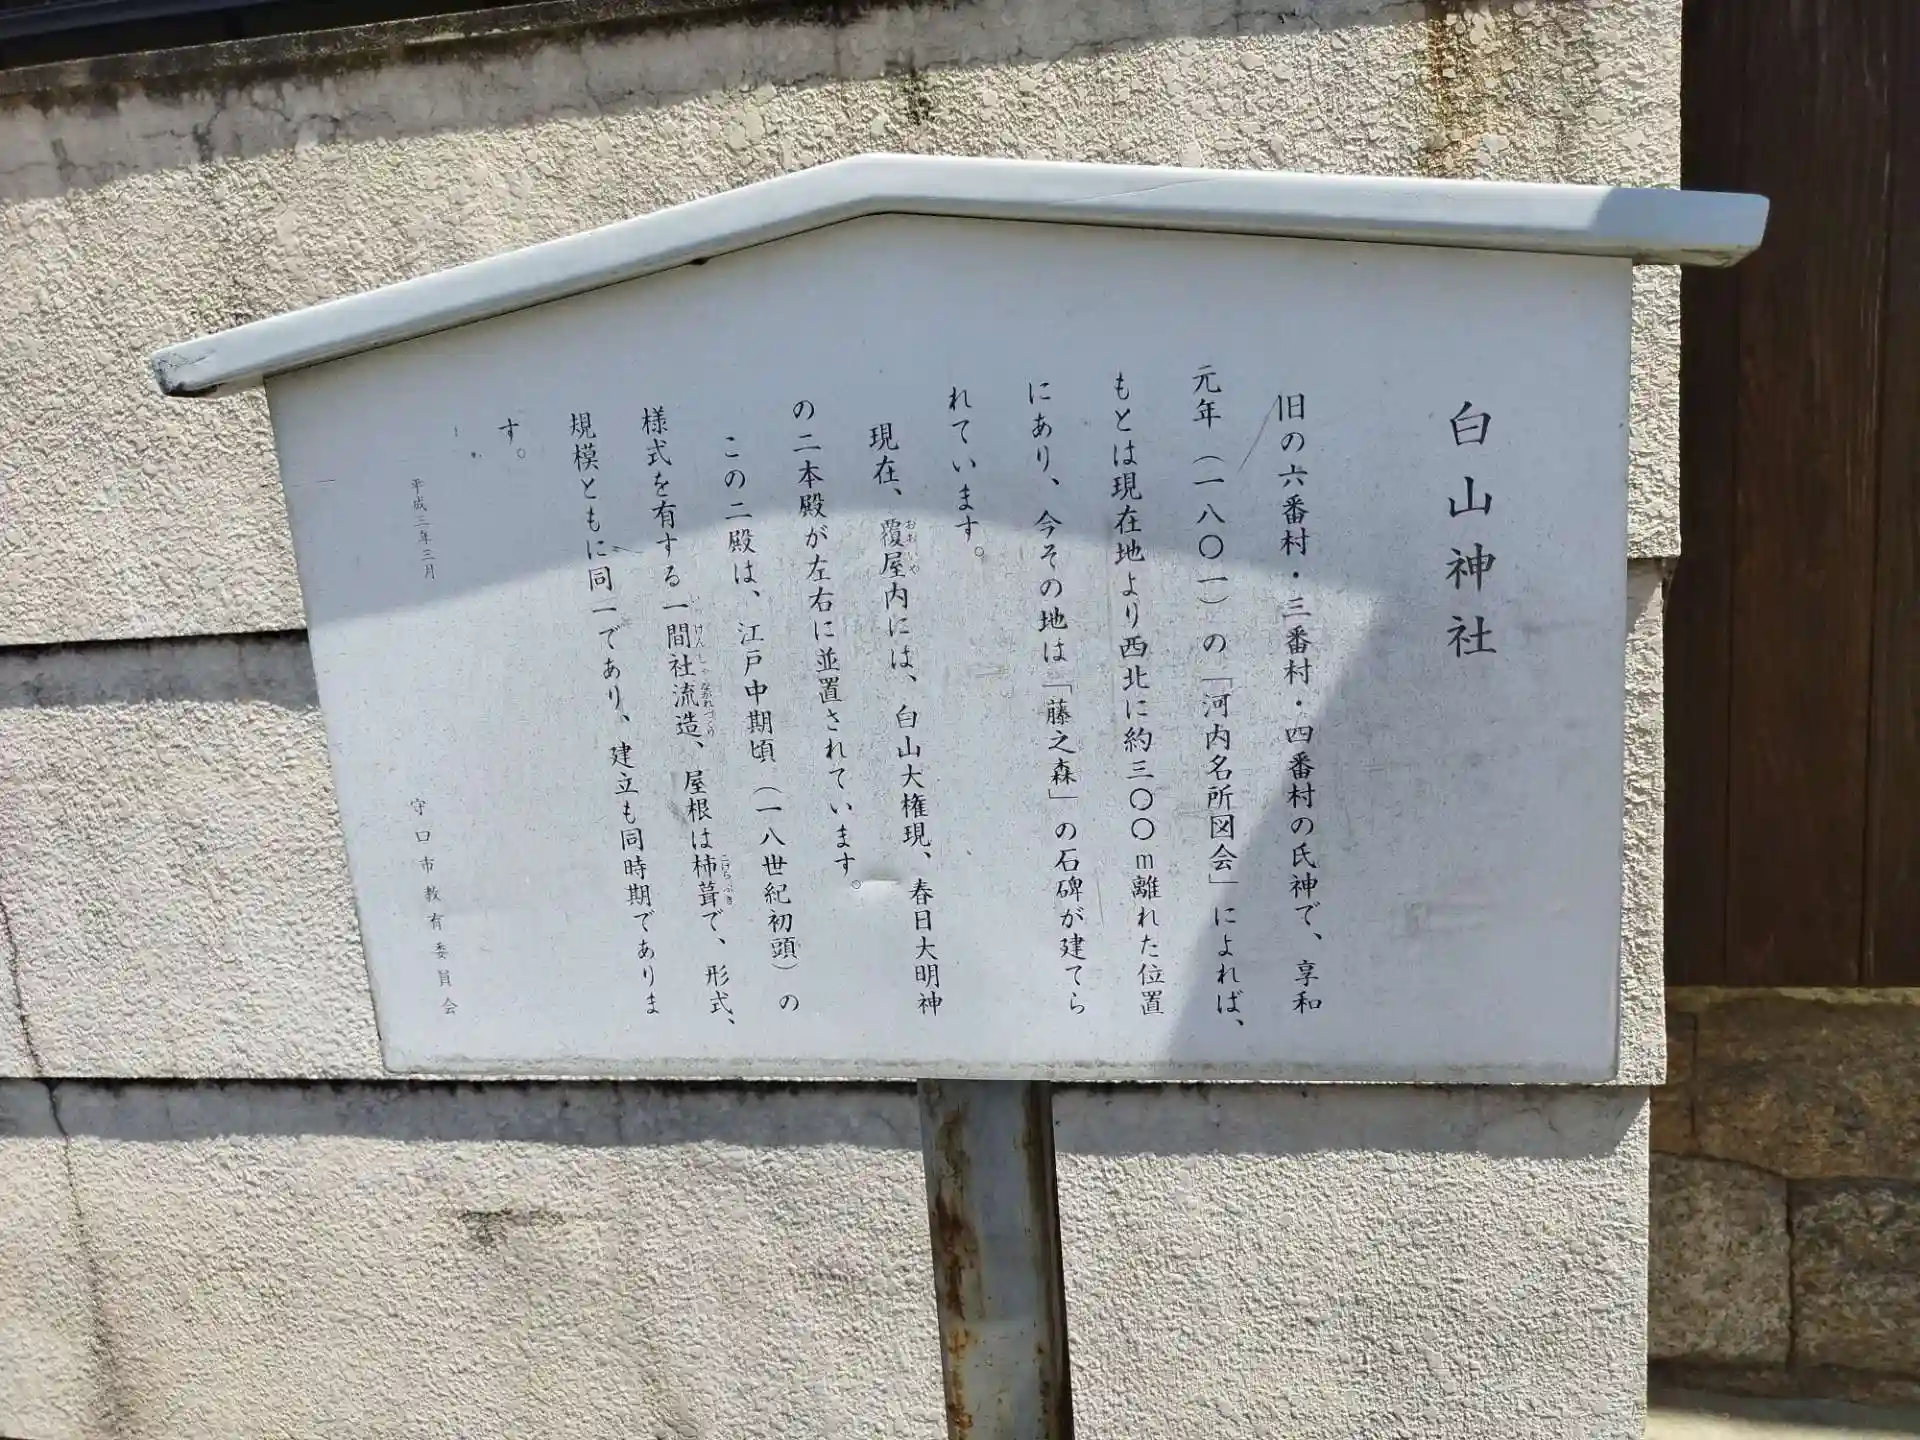 白山神社
旧の六番村・三番村・四番村の氏神で、享和
元年（一八〇一）の「河内名所図会」によれば、
もとは現在地より西北に約三〇〇m離れた位置
にあり、今その地は「藤之森」の石碑が建てら
れています。
現在、覆屋内には、白山大権現、春日大明神
の二本殿が左右に並置されています。
この二殿は、江戸中期頃（一八世紀初頭）の
様式を有する一間社流造、屋根は柿葺で、形式、
規模ともに同一であり、建立も同時期でありま
す。
平成三年三月
守口市教育委員会